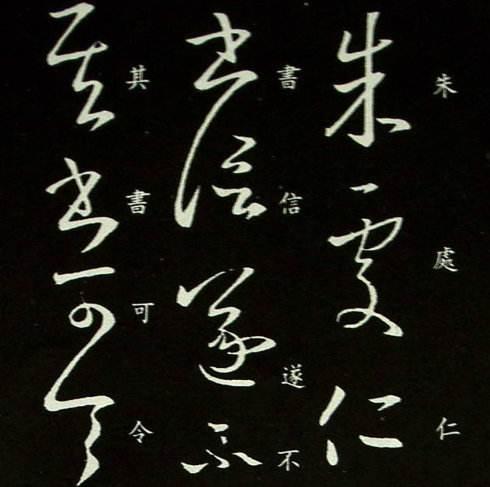 朱處仁
書信遂不
其書可令